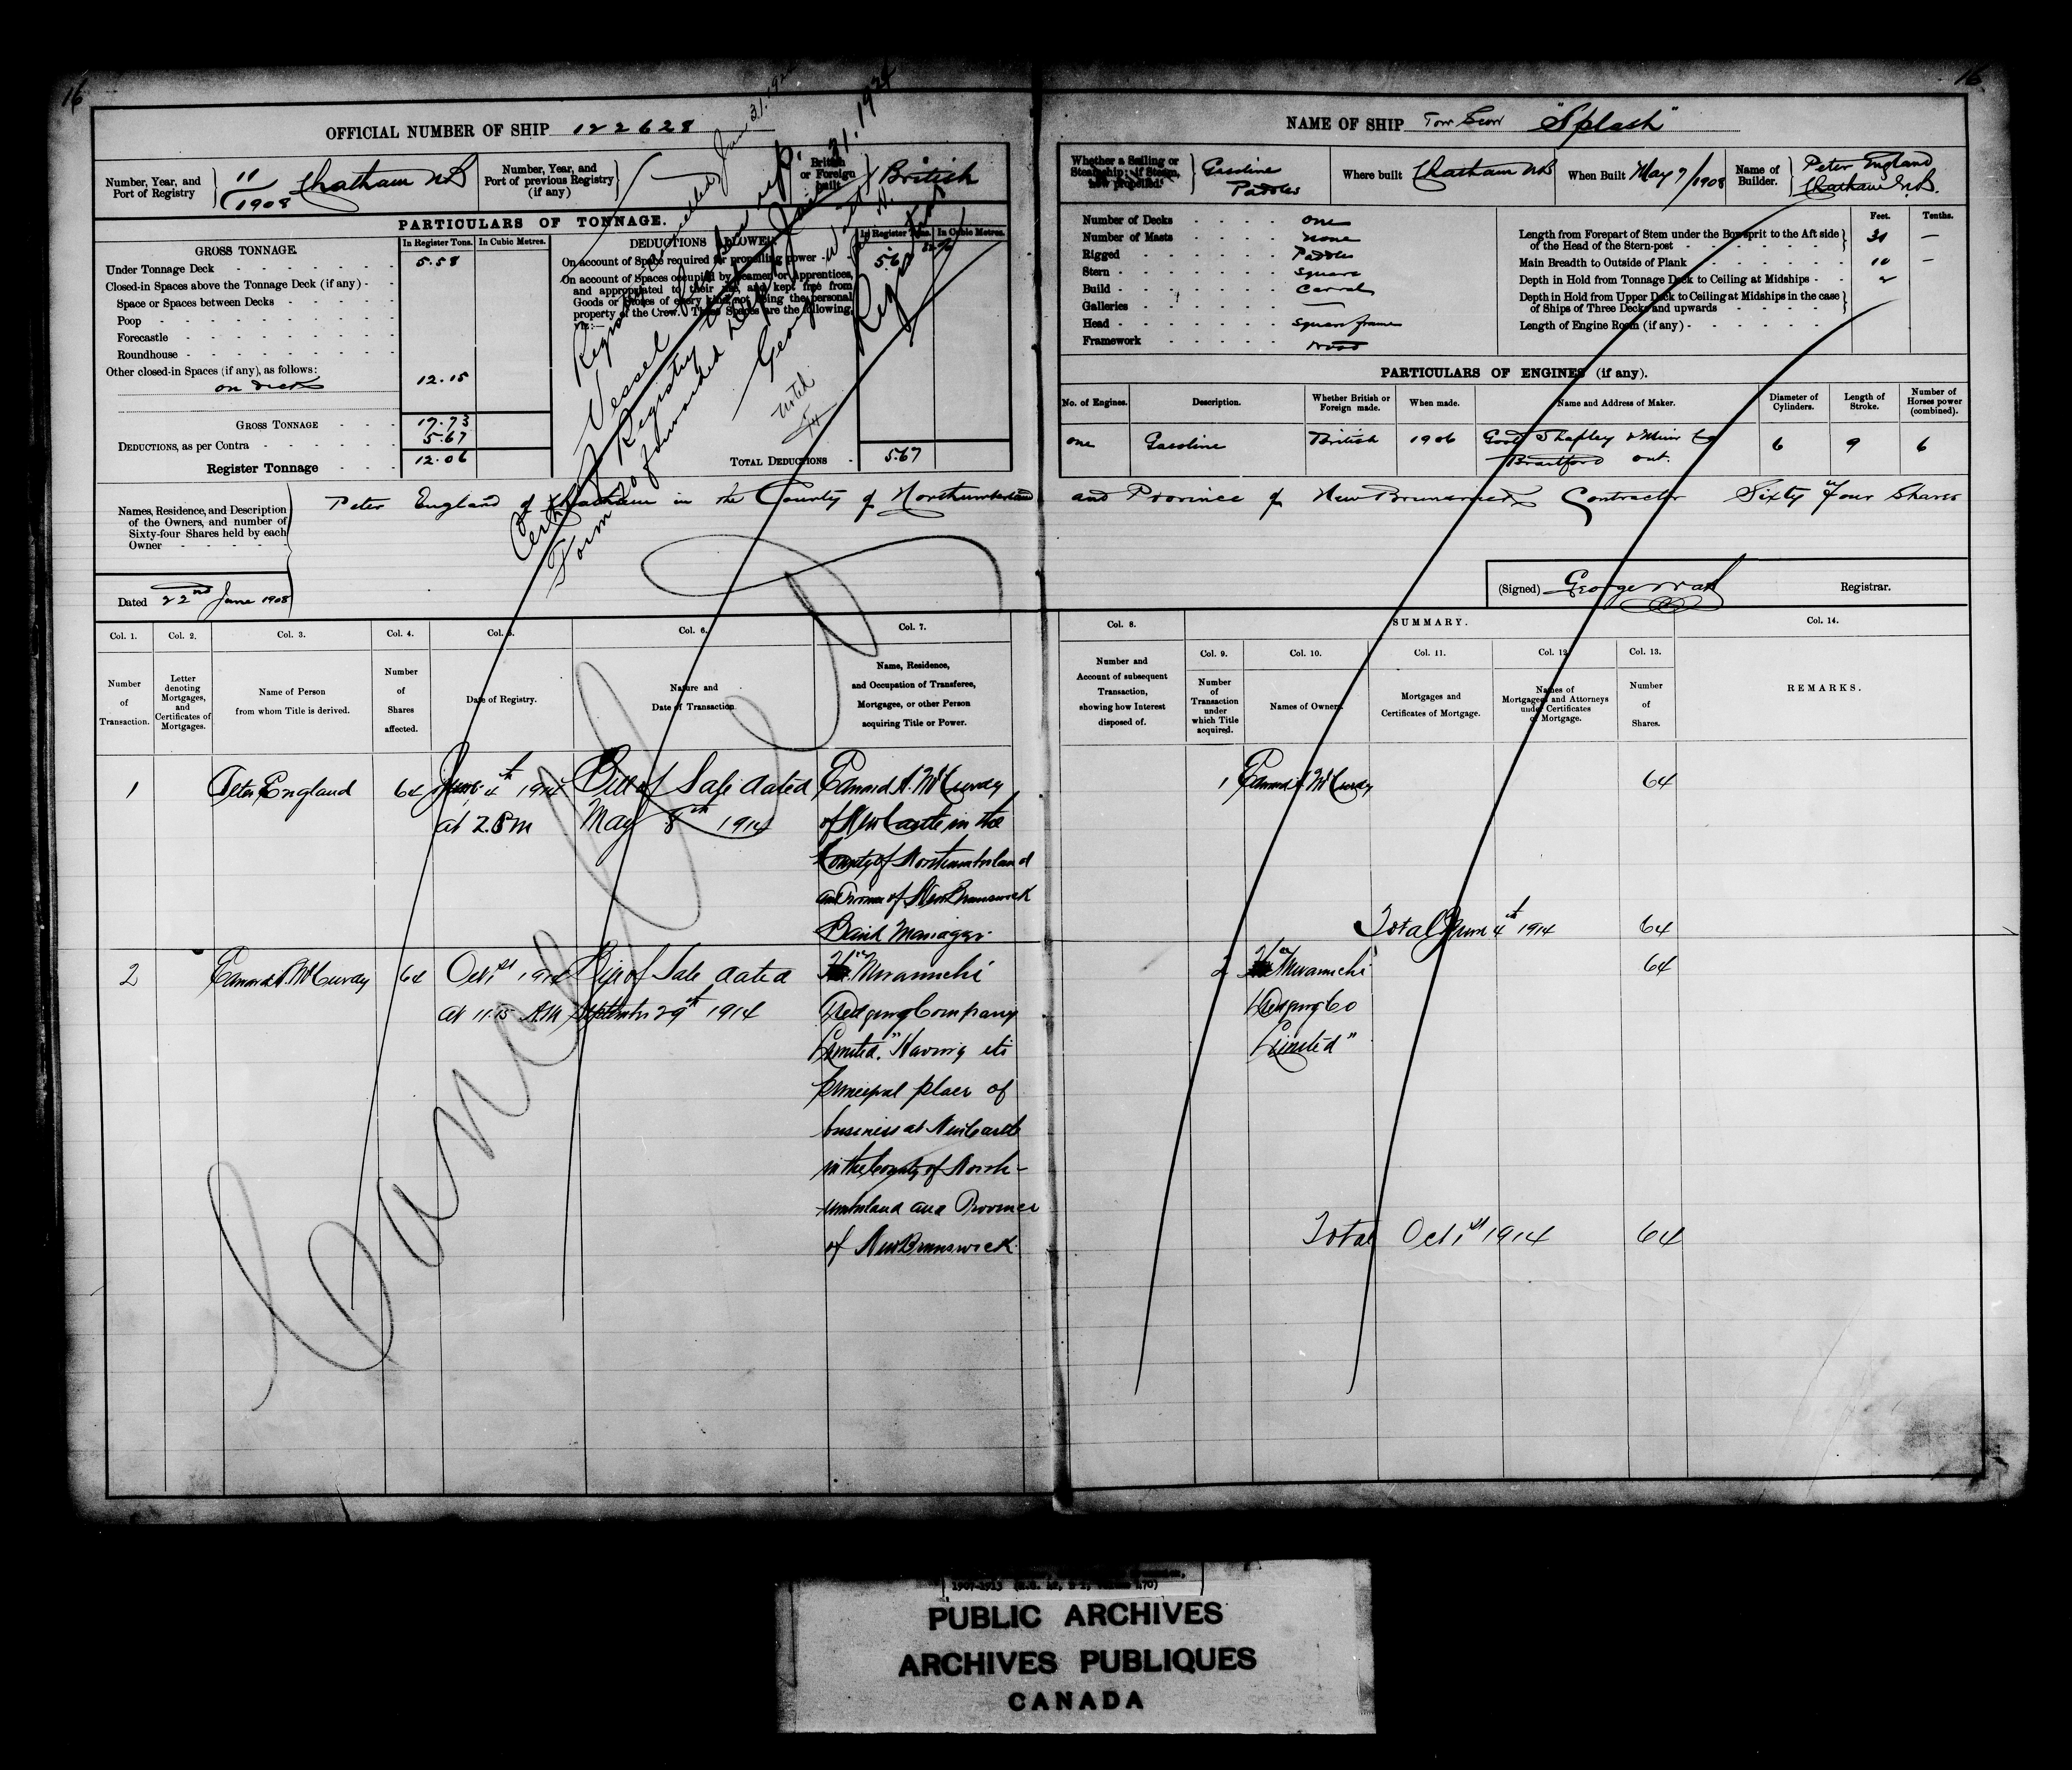 16
16
OFFICIAL NUMBER OF SHIP 122628
Number, Year, and
Port of Registry
11
1908
Chatham NB
Number, Year, and
Port of previous Registry
(if any)
British
or Foreign
built
British
PARTICULARS OF TONNAGE.
GROSS TONNAGE.
In Register Tons.
In Cubic Metres.
Under Tonnage Deck 5.58
Closed-in Spaces above the Tonnage Deck (if any)
Space or Spaces between Decks
Poop
Forecastle
Roundhouse
Other closed-in Spaces (if any), as follows:
on deck 12.15
GROSS TONNAGE 17.73
DEDUCTIONS, as per Contra 5.67
Register Tonnage 12.06
DEDUCTIONS ALLOWED.
In Register Tons.
In Cubic Metres.
On account of Space required for propelling power 5.67
On account of Spaces occupied by Seamen or Apprentices,
and appropriated to their use, and kept free from
Goods or Stores of every kind not being the personal
property of the Crew. These Spaces are the following,
viz:—
TOTAL DEDUCTIONS 5.67
Vessel
Registry
Noted
Registrar
NAME OF SHIP Tow Scow "Splash"
Whether a Sailing or
Steamship; if Steam,
how propelled.
Gasoline
Paddles
Where built Chatham NB
When Built May 7/1908
Name of
Builder.
Peter England
Chatham N.B.
Number of Decks one
Number of Masts none
Rigged Paddles
Stern Square
Build Carvel
Galleries —
Head Square frame
Framework Wood
Feet.
Tenths.
Length from Forepart of Stem under the Bowsprit to the Aft side
of the Head of the Stern-post
Main Breadth to Outside of Plank 10 —
Depth in Hold from Tonnage Deck to Ceiling at Midships 2
Depth in Hold from Upper Deck to Ceiling at Midships in the case
of Ships of Three Decks and upwards
Length of Engine Room (if any)
PARTICULARS OF ENGINES (if any).
No. of Engines.
Description.
Whether British or
Foreign made.
When made.
Name and Address of Maker.
Diameter of
Cylinders.
Length of
Stroke.
Number of
Horses power
(combined).
one
Gasoline
British
1906
Goold Shapley & Muir Co
Brantford Ont.
6
9
6
Names, Residence, and Description
of the Owners, and number of
Sixty-four Shares held by each
Owner
Peter England of Chatham in the County of Northumberland and Province of New Brunswick Contractor Sixty Four Shares
Dated 22nd June 1908
(Signed) George Watt Registrar.
Cancelled
Col. 1.
Col. 2.
Col. 3.
Col. 4.
Col. 5.
Col. 6.
Col. 7.
Number
of
Transaction.
Letter
denoting
Mortgages,
and
Certificates of
Mortgages.
Name of Person
from whom Title is derived.
Number
of
Shares
affected.
Date of Registry.
Nature and
Date of Transaction.
Name, Residence,
and Occupation of Transferee,
Mortgagee, or other Person
acquiring Title or Power.
Col. 8.
SUMMARY.
Col. 14.
Number and
Account of subsequent
Transaction,
showing how Interest
disposed of.
Col. 9.
Col. 10.
Col. 11.
Col. 12.
Col. 13.
Number
of
Transaction
under
which Title
acquired.
Names of Owners.
Mortgages and
Certificates of Mortgage.
Names of
Mortgagees and Attorneys
under Certificates
of Mortgage.
Number
of
Shares.
REMARKS.
1
Peter England
64
June 4th 1914
at 2. P.m
Bill of Sale dated
May 8th 1914
Edward A. McCurdy
of NewCastle in the
County of Northumberland
and Province of New Brunswick
Bank Manager
1
Edward A. McCurdy
64
Total June 4th 1914 64
2
Edward A. McCurdy
64
Oct 1st 1914
at 11.15 A.M
Bill of Sale dated
September 29th 1914
Miramichi
Dredging Company
Limited." Having its
principal place of
business at NewCastle
in the County of North-
umberland and Province
of New Brunswick
2
Miramichi
Dredging Co
Limited"
64
Total Oct 1st 1914 64
PUBLIC ARCHIVES
ARCHIVES PUBLIQUES
CANADA